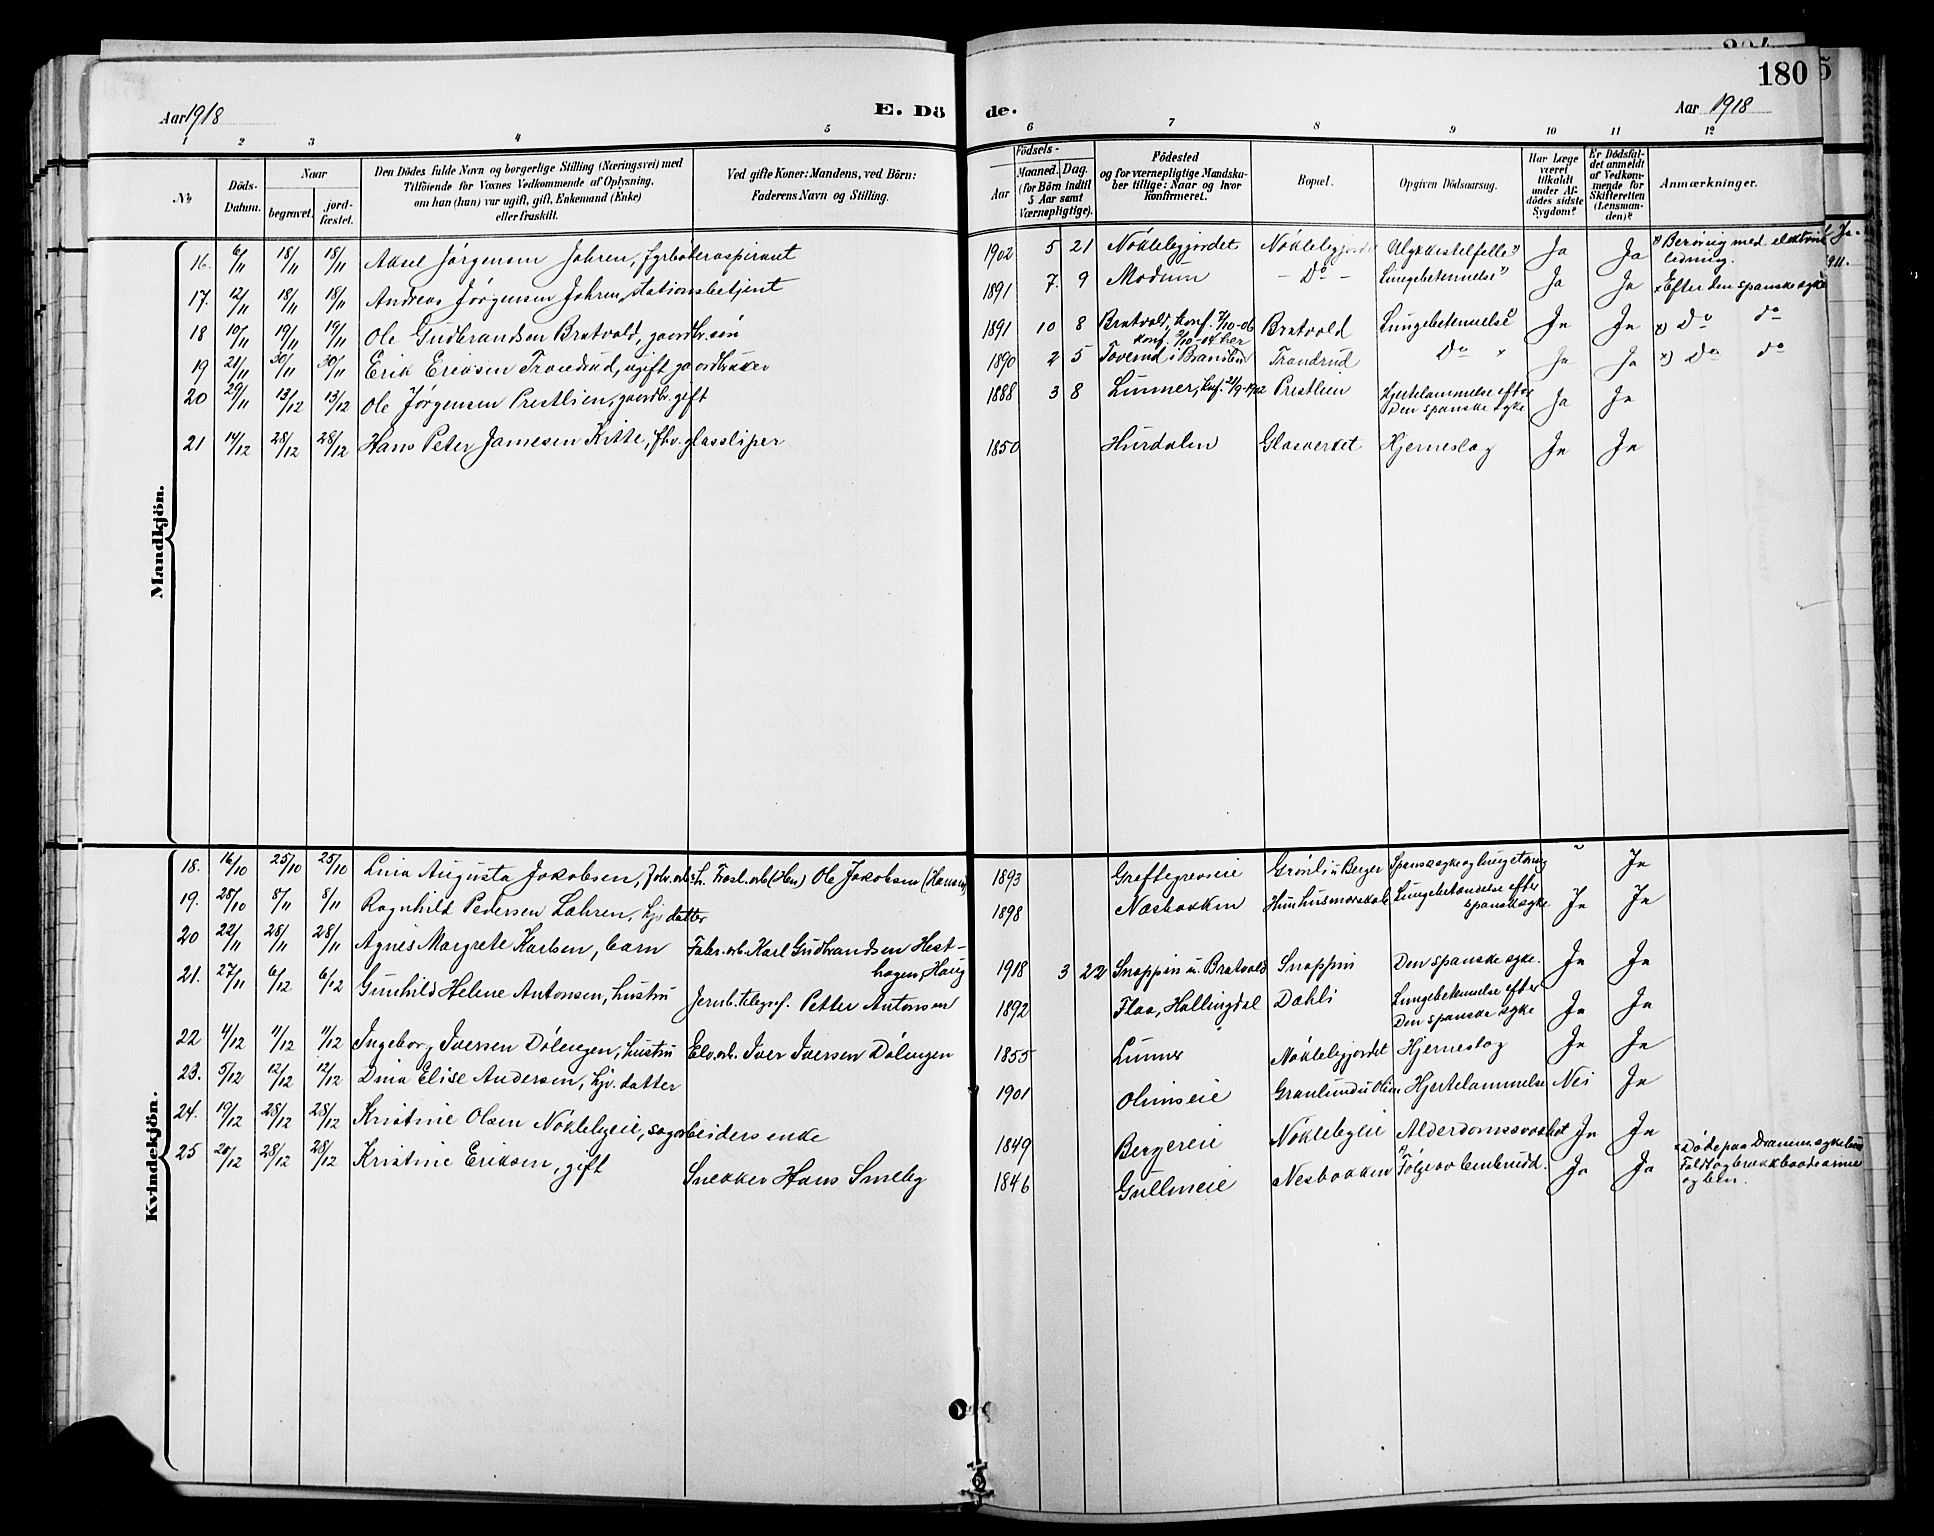 180
5
Aar 1918
E. Dö
de.
Aar 1918
1 2 3 4 5 6 7 8 9 10 11 12
№
Döds-
Datum.
Naar
begravet.
jord-
fæstet.
Den Dödes fulde Navn og borgerlige Stilling (Næringsvei) med
Tilföiende for Voxnes Vedkommende af Oplysning,
om han (hun) var ugift, gift, Enkemand (Enke)
eller fraskilt.
Ved gifte Koner: Mandens, ved Börn:
Faderens Navn og Stilling.
Födsels-
Aar
Maaned. Dag.
(for Börn indtil
5 Aar samt
Værnepligtige).
Födested
og for værnepligtige Mandska-
ber tillige: Naar og hvor
konfirmeret.
Bopæl.
Opgiven Dödsaarsag.
Har Læge
været
tilkaldt
under Af-
dödes sidste
Sygdom?
Er Dödsfal-
det anmeldt
af Vedkom-
mende for
Skifteretten
(Lensman-
den)?
Anmærkninger.
Mandkjön.
16. 6/11 18/11 18/11 Aksel Jørgensen Johren, fyrböteraspirant 1902 5 21 Nöklebygjordet Nöklebygjordet Ulykkestilfelle x) Ja Ja x) Beröring med elektrisk
ledning.
17. 12/11 18/11 18/11 Andreas Jørgensen Johren, stationsbetjent 1891 7. 9 Modum - Do - Lungebetennelse x) Ja Ja x Efter den spanske syke
18 10/11 19/11 19/11 Ole Gudbrandsen Bratvold, gaardbr. sön 1891 10 8 Bratvold, konf. 7/10-06 Bratvold Lungebetennelse x) Ja Ja x) Do do
19 21/11 30/11 30/11 Erik Eriksen Trandrud, ugift gaardbruker 1890 2 5 konf. 2/10-04 her
Toverud i Brandbu Trandrud Do x Ja Ja x) Do do
20 29/11 13/12 13/12 Ole Jørgensen Prestlien, gaardbr. gift 1888 3 8 Lunner, knf. 21/9-1902 Prestlien Hjertelammelse efter
Den spanske syke Ja Ja
21 14/12 28/12 28/12 Hans Peter Jamesen Kitte, fhv. glassliper 1850 Hurdalen Glasverket Hjerneslag Ja Ja
Kvindekjön.
18. 16/10 25/10 25/10 Lina Augusta Jakobsen, Fabr. arb. h. Træsl. arb. Ole Jakobsen (Hansen) 1893 Greftegreveie Grönli u Berger Spanskesyke og lungetæring Ja
19. 28/10 8/11 8/11 Ragnhild Pedersen Lahren, hj. datter 1898 Næsbakken Hurum husmorskole Lungebetændelse efter
spanskesyke Ja Ja
20 22/11 28/11 28/11 Agnes Margrete Karlsen, barn Fabr. arb. Karl Gudbrandsen Hest-
hagen, Haug 1918 3 22 Snoppin u. Bratvold Snoppin Den spanske syke. Ja Ja
21. 27/11 6/12 6/12 Gunhild Helene Antonsen, hustru Jernb. telegraf. Petter Antonsen 1892 Flaa, Hallingdal Dahli Lungebetennelse efter
Den spanske syke Ja Ja
22 4/12 11/12 11/12 Ingeborg Iversen Dölengen, hustru Elv. arb. Iver Iversen Dölengen 1855 Lunner Nöklebygjordet Hjerneslag Ja Ja
23. 5/12 12/12 12/12 Dina Elise Andersen, hj. datter 1901 Olimseie Granlund u Olim Hjertelammelse Nei Ja
24. 19/12 28/12 28/12 Kristine Olsen Nöklebyeie, sagarbeiders enke 1849 Bergereie Nöklebyeie Alderdomssvakhet Ja Ja
25 20/12 28/12 28/12 Kristine Eriksen, gift Snekker Hans Smeby 1846 Gullerneie Nesbakken x) Fölge av benbrudd. Ja Ja x Döde paa Drammens sykehus
Faldt og brækket baade arme
og ben.